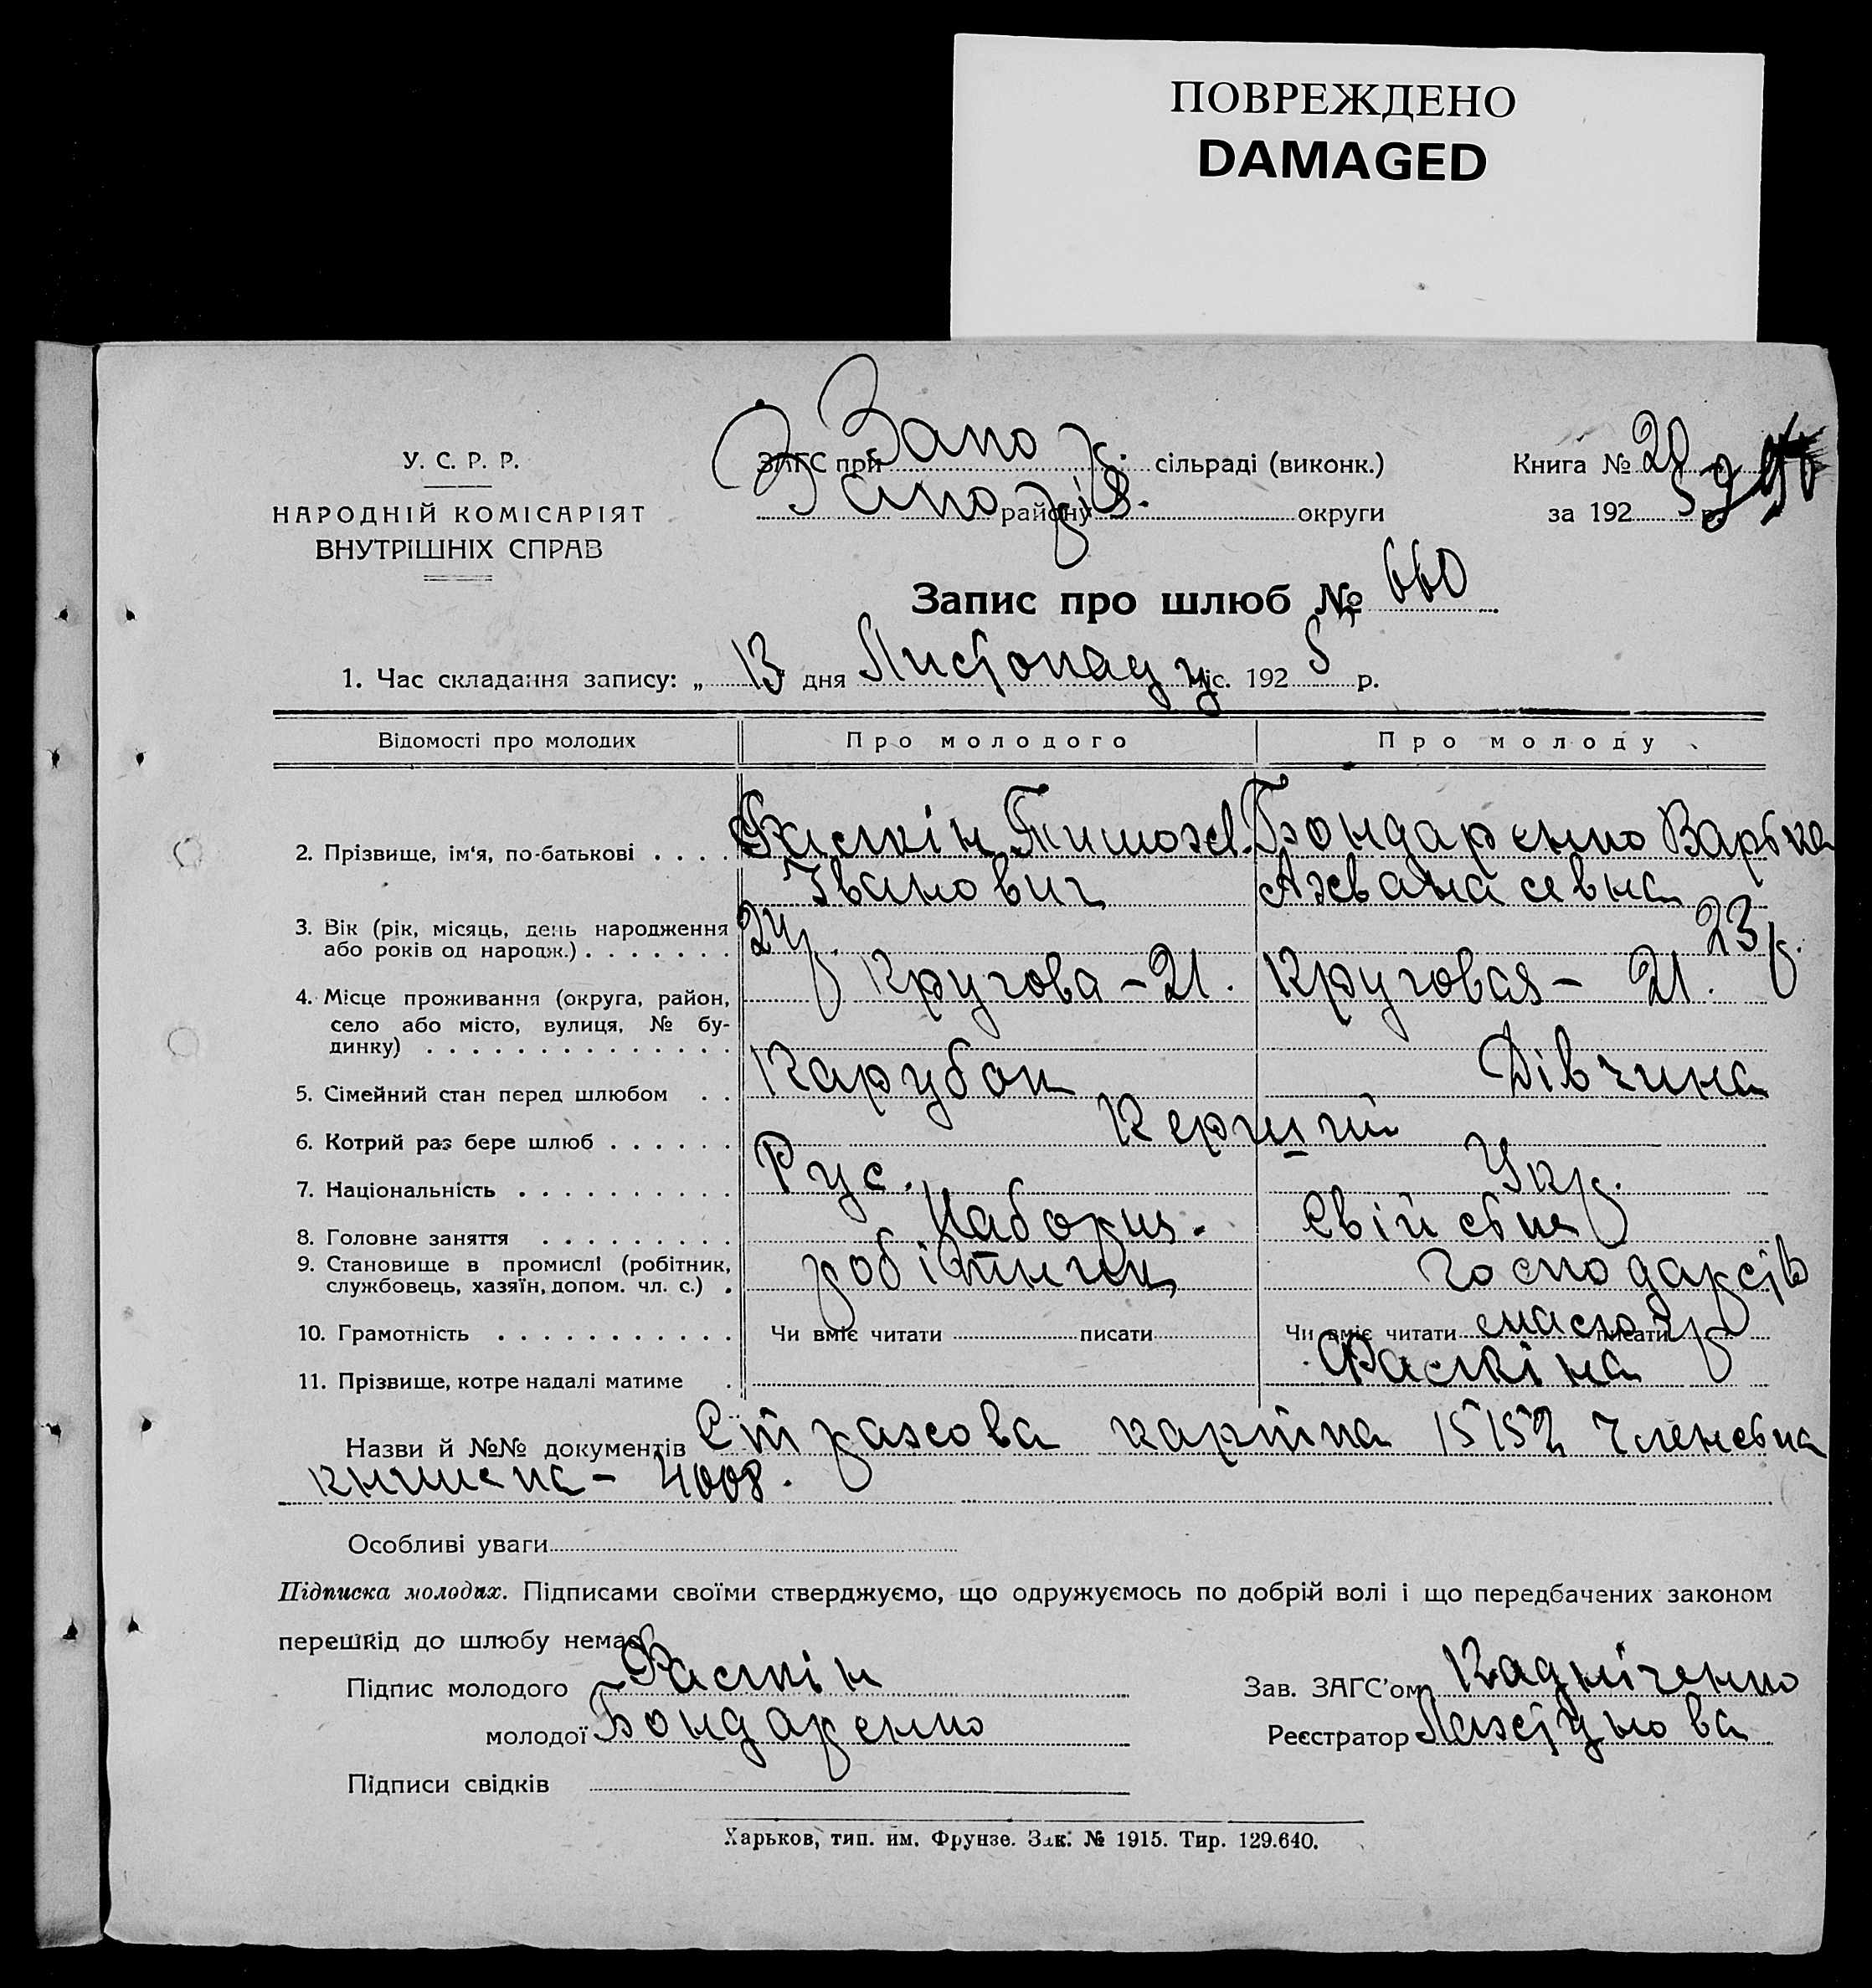 ПОВРЕЖДЕНО
DAMAGED
У. С. Р. Р.
НАРОДНІЙ КОМІСАРІЯТ
ВНУТРІШНІХ СПРАВ
ЗАГС при Запор. сільраді (виконк.)
Запоріз. району округи
Книга № 20
за 192 5 р.
Запис про шлюб № 660
1. Час складання запису: „ 13 дня Листопаду міс. 192 5 р.
Відомості про молодих Про молодого Про молоду
2. Прізвище, ім'я, по-батькові Фаскін Тимохв. Бондаренко Варька
Іванович Ахванасевна
3. Вік (рік, місяць, день народження
або років од народж.) 24 р. 23 р.
4. Місце проживання (округа, район, Кругова - 21. Круговая - 21.
село або місто, вулиця, № бу-
динку)
5. Сімейний стан перед шлюбом Парубок Дівчина
6. Котрий раз бере шлюб Перший
7. Національність Рус. Укр.
8. Головне заняття Свійська
9. Становище в промислі (робітник, робітник господарств
службовець, хазяїн, допом. чл. с.)
10. Грамотність Чи вміє читати писати Чи вміє читати писати
11. Прізвище, котре надалі матиме Фаскіна
Назви й №№ документів Страхова картка 15152 Членська
книжка - 4008.
Особливі уваги
Підписка молодих. Підписами своїми стверджуємо, що одружуємось по добрій волі і що передбачених законом
перешкід до шлюбу немає
Підпис молодого Фаскін
Зав. ЗАГС'ом
молодої Бондаренко
Реєстратор
Підписи свідків
Харьков, тип. им. Фрунзе. Зак. № 1915. Тир. 129.640.